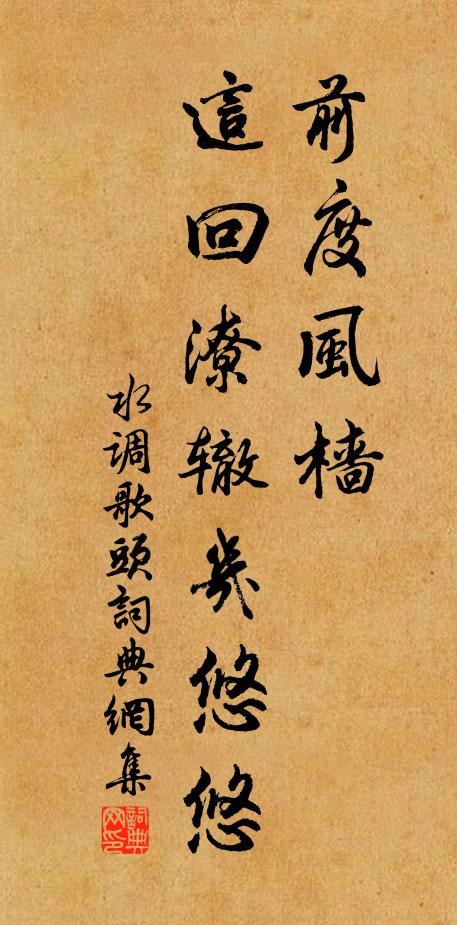 前度風檣
這回潦辙幾悠悠
水调歌頭詞典網集
詞典网印